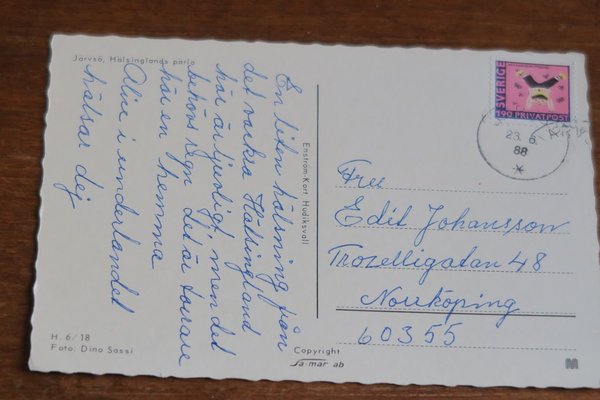 Järvsö, Hälsinglands pärla
En liten hälsning från
det vackra Hälsingland
här är ljuvligt, men det
behövs regn det är torrare
här en hemma
Alice i underlandet
hälsar dej
H. 6/18
Foto: Dino Sassi
Enström-Kort Hudiksvall
Copyright
Sa-mär ab
SVERIGE
190 PRIVATPOST
23. 6.
88
Fru
Edit Johansson
Trozelligatan 48
Norrköping
60355
M